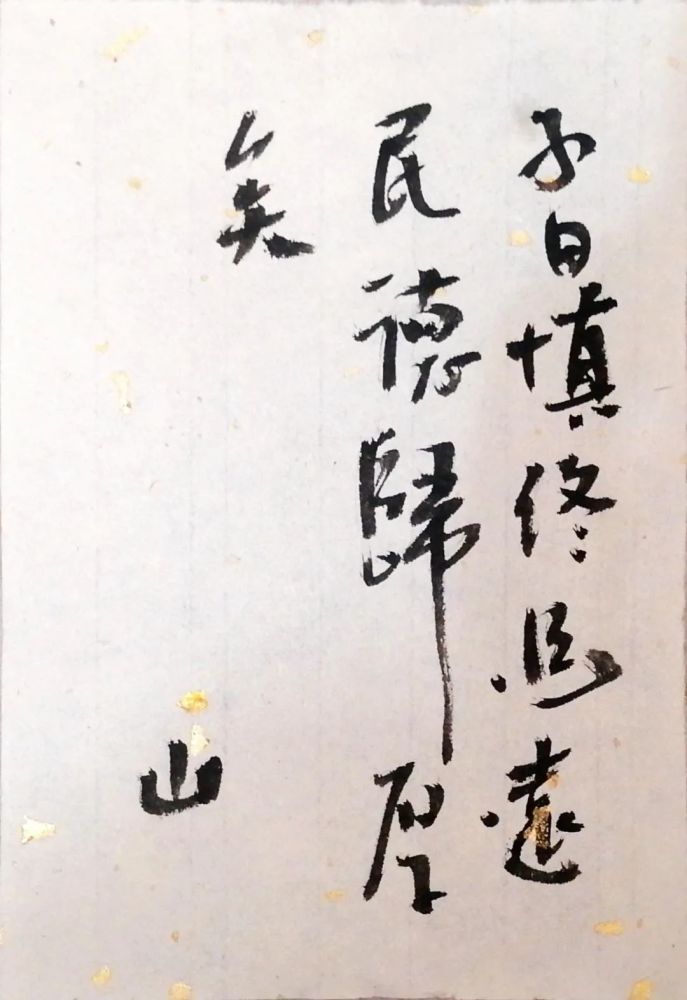 子曰慎終追遠
民德歸厚
矣
山